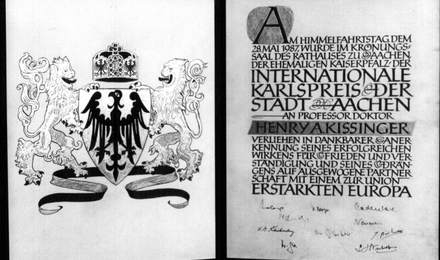 AM HIMMELFAHRTSTAG DEM
28. MAI 1987, WURDE IM KRÖNUNGS-
SAAL DES RATHAUSES ZU AACHEN,
DER EHEMALIGEN KAISERPFALZ, DER
INTERNATIONALE
KARLSPREIS DER
STADT AACHEN
AN PROFESSOR DOKTOR
HENRY A. KISSINGER
VERLIEHEN IN DANKBARER ANER-
KENNUNG SEINES ERFOLGREICHEN
WIRKENS FÜR FRIEDEN UND VER-
STÄNDIGUNG UND SEINES DRÄN-
GENS AUF AUSGEWOGENE PARTNER-
SCHAFT MIT EINEM ZUR UNION
ERSTARKTEN EUROPA